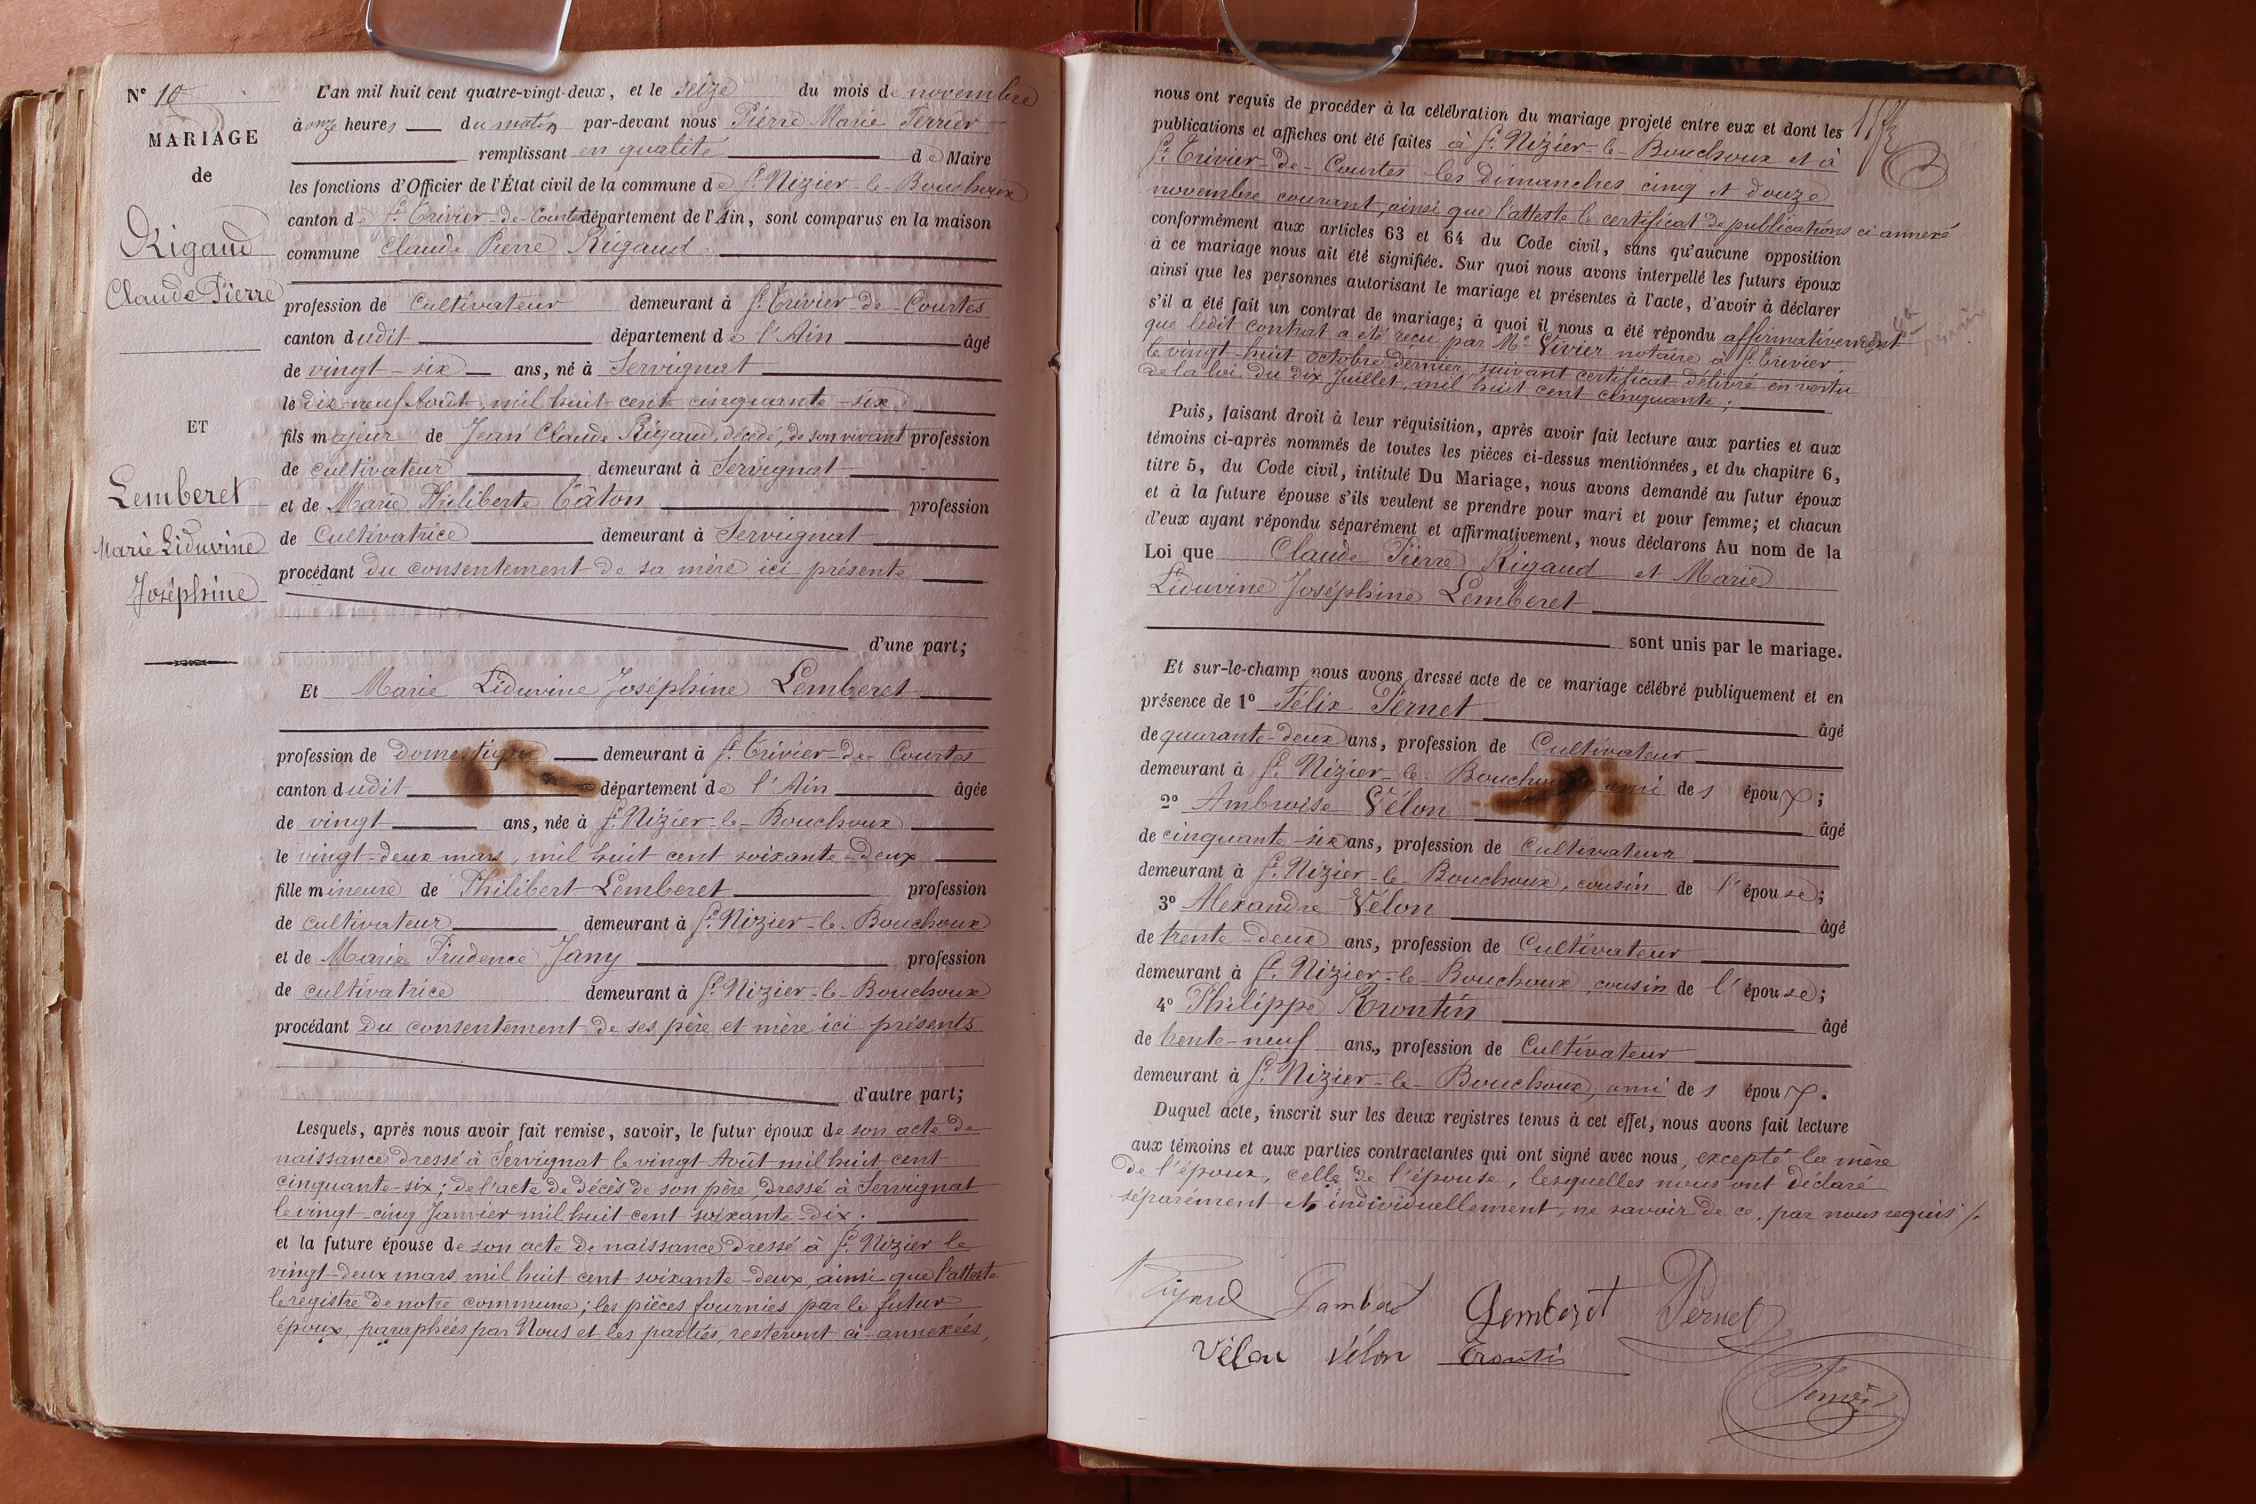 N° 10
MARIAGE
de
Rigaud
Claude Pierre
ET
Lemberet
Marie Liduvine
Joséphine
L'an mil huit cent quatre-vingt-deux, et le seize du mois de novembre
à onze heures du matin par-devant nous Pierre Marie Ferrier
remplissant en qualité de Maire
les fonctions d'Officier de l'État civil de la commune de St Nizier-le-Bouchoux
canton de St Trivier-de-Courtes département de l'Ain, sont comparus en la maison
commune Claude Pierre Rigaud
profession de Cultivateur demeurant à St Trivier-de-Courtes
canton dudit département de l'Ain âgé
de vingt-six ans, né à Servignat
le dix-neuf Août, mil huit cent cinquante-six
fils majeur de Jean Claude Rigaud, décédé, de son vivant profession
de cultivateur demeurant à Servignat
et de Marie Philiberte Câton profession
de Cultivatrice demeurant à Servignat
procédant du consentement de sa mère ici présente
d'une part;
Et Marie Liduvine Joséphine Lemberet
profession de domestique demeurant à St Trivier-de-Courtes
canton dudit département de l'Ain âgée
de vingt ans, née à St Nizier-le-Bouchoux
le vingt-deux mars, mil huit cent soixante-deux
fille mineure de Philibert Lemberet profession
de cultivateur demeurant à St Nizier-le-Bouchoux
et de Marie Prudence Jany profession
de cultivatrice demeurant à St Nizier-le-Bouchoux
procédant du consentement de ses père et mère ici présents
d'autre part;
Lesquels, après nous avoir fait remise, savoir, le futur époux de son acte de
naissance dressé à Servignat le vingt Août mil huit cent
cinquante-six; de l'acte de décès de son père, dressé à Servignat
le vingt-cinq Janvier mil huit cent soixante-dix;
et la future épouse de son acte de naissance dressé à St Nizier le
vingt-deux mars mil huit cent soixante-deux, ainsi que l'atteste
le registre de notre commune; les pièces fournies par le futur
époux, paraphées par Nous et les parties, resteront ci-annexées,
nous ont requis de procéder à la célébration du mariage projeté entre eux et dont les
publications et affiches ont été faites à St Nizier-le-Bouchoux et à
St Trivier-de-Courtes les dimanches cinq et douze
novembre courant, ainsi que l'atteste le certificat de publications ci annexé
conformément aux articles 63 et 64 du Code civil, sans qu'aucune opposition
à ce mariage nous ait été signifiée. Sur quoi nous avons interpellé les futurs époux
ainsi que les personnes autorisant le mariage et présentes à l'acte, d'avoir à déclarer
s'il a été fait un contrat de mariage; à quoi il nous a été répondu affirmativement
que ledit contrat a été reçu par Me Vivier notaire à St Trivier
le vingt-huit octobre dernier, suivant certificat délivré en vertu
de la loi du dix Juillet, mil huit cent cinquante;
Puis, faisant droit à leur réquisition, après avoir fait lecture aux parties et aux
témoins ci-après nommés de toutes les pièces ci-dessus mentionnées, et du chapitre 6,
titre 5, du Code civil, intitulé Du Mariage, nous avons demandé au futur époux
et à la future épouse s'ils veulent se prendre pour mari et pour femme; et chacun
d'eux ayant répondu séparément et affirmativement, nous déclarons Au nom de la
Loi que Claude Pierre Rigaud et Marie
Liduvine Joséphine Lemberet
sont unis par le mariage.
Et sur-le-champ nous avons dressé acte de ce mariage célébré publiquement et en
présence de 1° Félix Pernet âgé
de quarante-deux ans, profession de Cultivateur
demeurant à St Nizier-le-Bouchoux, ami des époux;
2° Ambroise Vélon âgé
de cinquante-six ans, profession de Cultivateur
demeurant à St Nizier-le-Bouchoux, cousin de l'épouse;
3° Alexandre Vélon âgé
de trente-deux ans, profession de Cultivateur
demeurant à St Nizier-le-Bouchoux, cousin de l'épouse;
4° Philippe Trontin âgé
de trente-neuf ans, profession de Cultivateur
demeurant à St Nizier-le-Bouchoux, ami des époux.
Duquel acte, inscrit sur les deux registres tenus à cet effet, nous avons fait lecture
aux témoins et aux parties contractantes qui ont signé avec nous, excepté la mère
de l'époux, celle de l'épouse, lesquelles nous ont déclaré
séparément et individuellement, ne savoir de ce, par nous requis ./.
Rigaud Lamberet Lemberet Pernet
Vélon Vélon Trontin
Ferrier